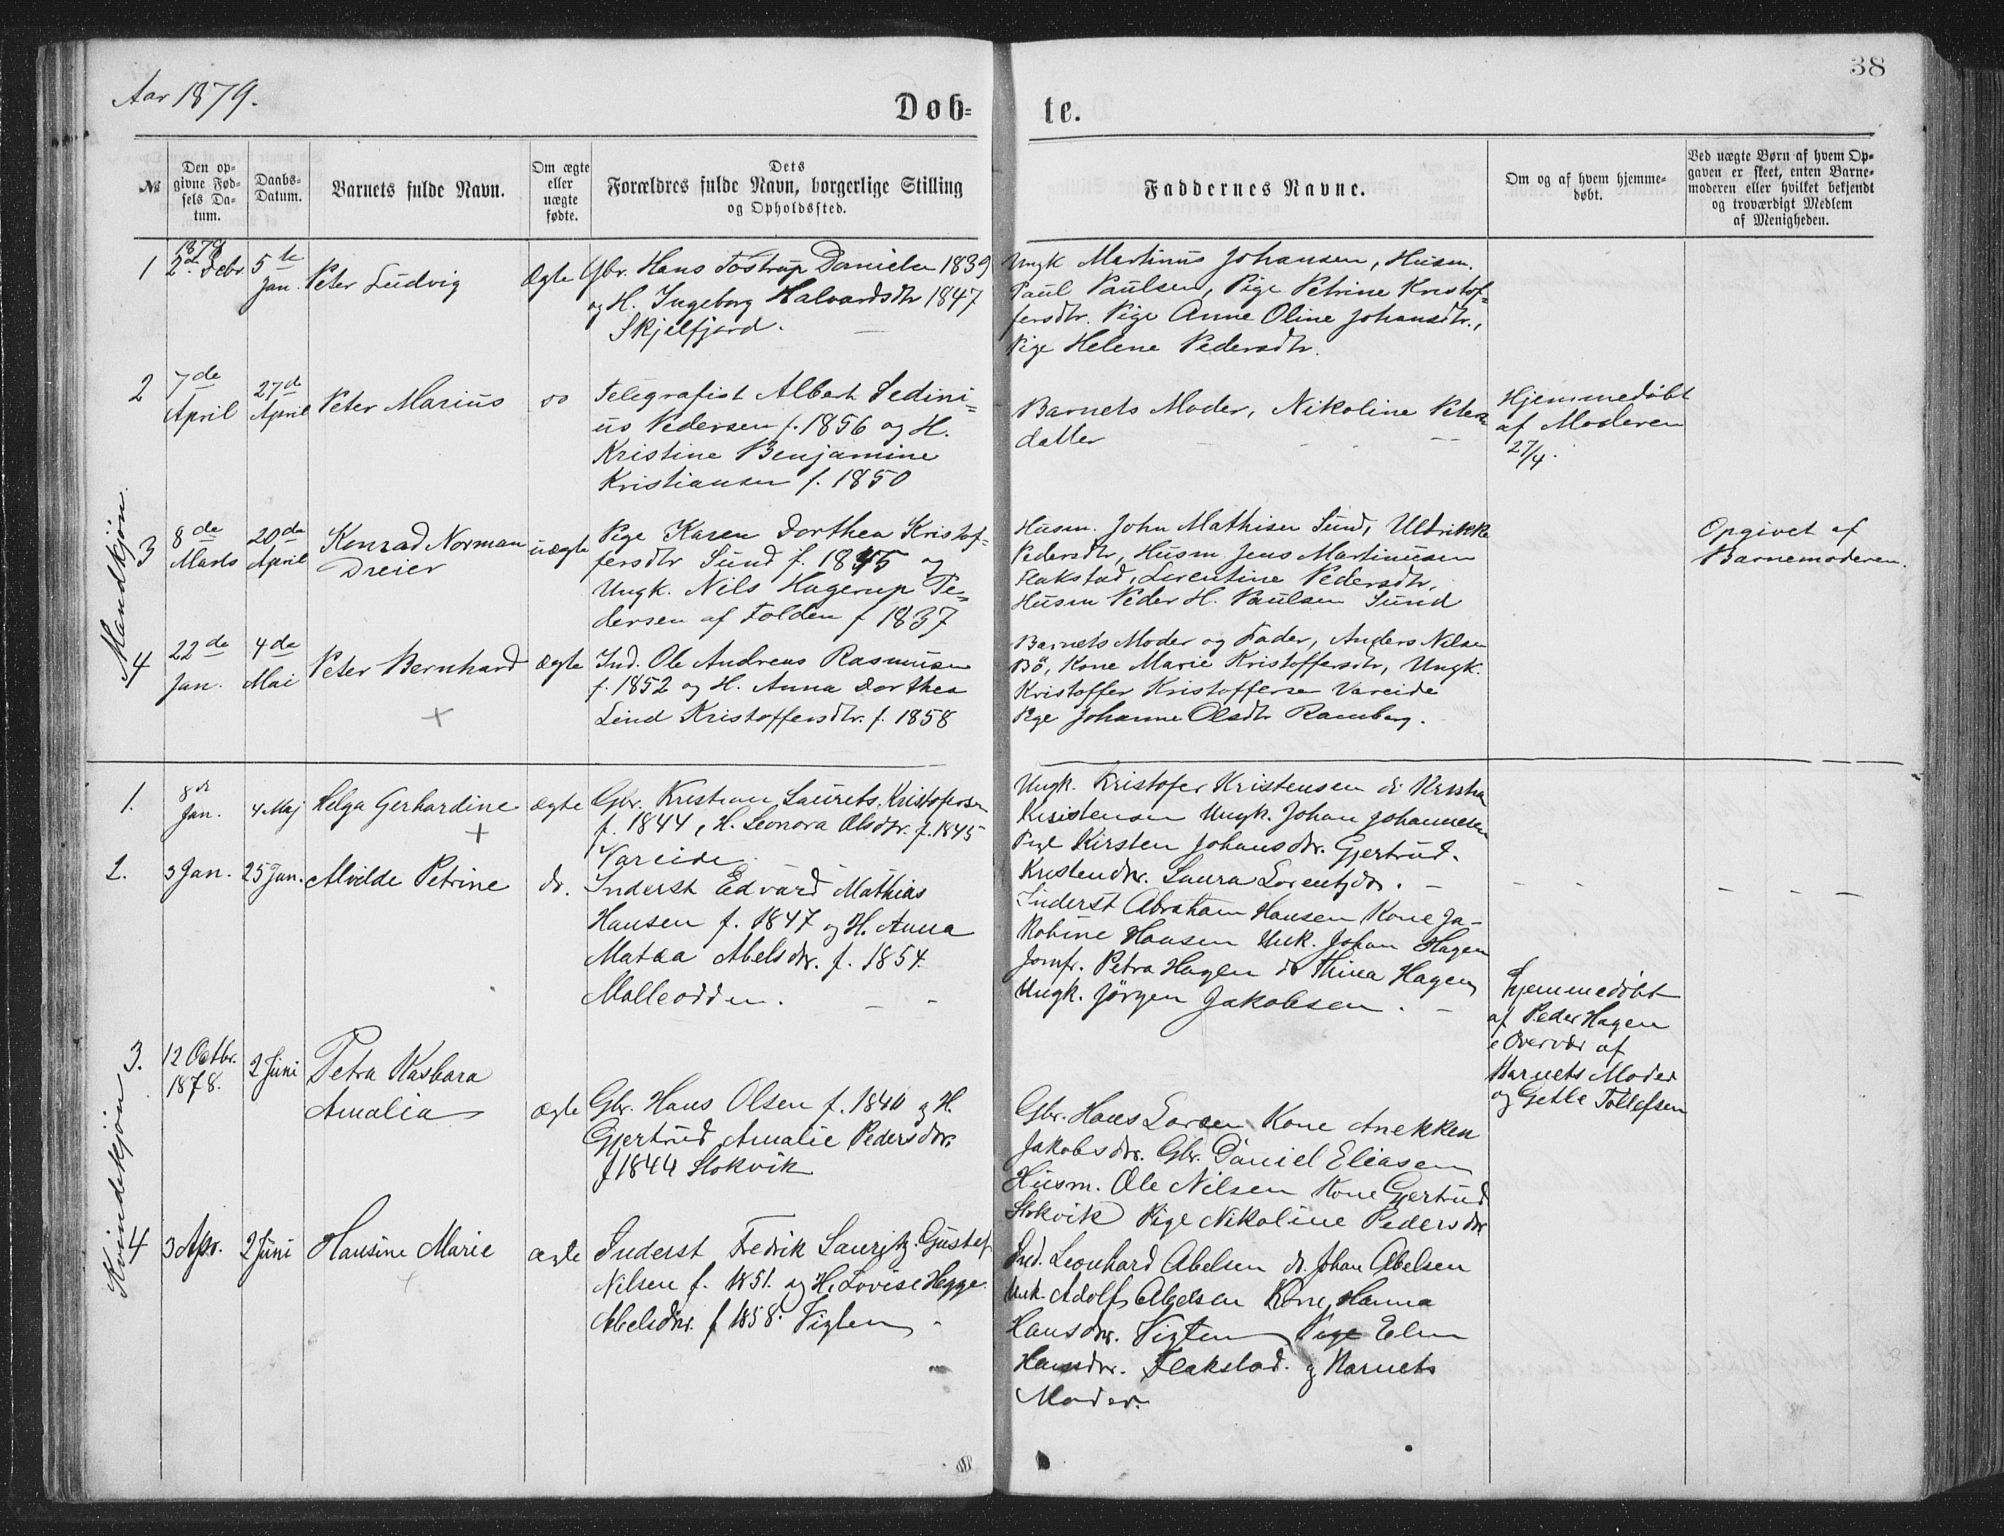 Aar 1879.
38
Døb-
te.
№
Den op-
givne Fød-
sels Da-
tum.
Daabs-
Datum.
Barnets fulde Navn.
Om ægte
eller
uægte
fødte.
Dets
Forældres fulde Navn, borgerlige Stilling
og Opholdssted.
Faddernes Navne.
Om og af hvem hjemme-
døbt.
Ved uægte Børn af hvem Op-
gaven er skeet, enten Barne-
moderen eller hvilket bekjendt
og troværdigt Medlem
af Menigheden.
Mandkjøn.
1
1879
2de Febr
5te
Jan.
Peter Ludvig
Ægte
Gbr. Hans Tostrup Danielsen 1839
og H. Ingeborg Halvardsdtr 1847
Skjelfjord.
Ungk Martinus Johansen, Husm.
Paul Paulsen, Pige Petrine Kristof-
fersdtr. Pige Anne Oline Johansdtr.,
Pige Helene Pedersdtr.
2
7de
April
27de
April
Peter Marius
do
Telegrafist Albert Sedini-
us Pedersen f. 1856 og H.
Kristine Benjamine
Kristiansen f. 1850
Barnets Moder, Nikoline Peters
datter
Hjemmedøbt
af Moderen
27/4.
3
8de
Marts
20de
April
Konrad Norman
Dreier
uægte
Pige Karen Dorthea Kristof-
fersdtr Sund f. 1845 og
Ungk. Nils Hagerup Pe-
dersen af Folden f 1837
Husm. John Mathisen Sund, Uldrikke
Pedersdtr, Husm Jens Martinusen
Flakstad, Lorentine Pedersdtr,
Husm Peder H. Paulsen Sund
Opgivet af
Barnemoderen.
4
22de
Jan.
4de
Mai
Peter Bernhard
+
Ægte
Ind. Ole Andreas Rasmusen
f. 1852 og H. Anna Dorthea
Lind Kristoffersdtr. f. 1858
Barnets Moder og Fader, Anders Nilsen
Bø, Kone Marie Kristoffersdtr, Ungk.
Kristoffer Kristoffersen Vareide
Pige Johanne Olsdtr Ramberg.
Kvindekjøn
1.
8de
Jan.
4 Maj
Helga Gerhardine
+
ægte
Gbr. Kristian Laurets. Kristofersen
f. 1844, H. Leonora Olsdtr. f. 1845
Vareide.
Ungk. Kristofer Kristensen do Kristian
Kristensen Ungk. Johan Johannesen
Pige Kirsten Johansdtr. Gjertrud.
Kristendtr. Laura Lorentzdtr.
2.
3 Jan.
25 Jan.
Alvilde Petrine
do.
Inderst Edvard Mathias
Hansen f. 1847 og H. Anna
Matea Abelsdtr. f. 1854.
Molleodden.
Inderst Abraham Hansen Kone Ja-
kobine Hansen Unk. Johan Hagen
Jomfr. Petra Hagen do Thina Hagen
Ungk. Jörgen Jakobsen.
3.
12 Octbr.
1878.
2 Juni
Petra Kasbara
Amalia
ægte
Gbr. Hans Olsen f. 1840 og H.
Gjertrud Amalie Pedersdtr.
f 1844 Stokvik
Gbr. Hans Larsen Kone Anekken
Jakobsdtr. Gbr. Daniel Eliasen
Husm. Ole Nilsen Kone Gjertrud
Stokvik Pige Nikoline Pedersdtr
Hjemmedøbt
af Peder Hagen
i Overvær af
Barnets Moder
og Getle Tollefsen
4
3 Apr.
2 Juni
Hansine Marie
+
ægte
Inderst Fedrik Lauritz. Gustaf
Nilsen f. 1851. og H. Lovise Hegge.
Abelsdtr. f 1858. Vigten
Ind. Leonhard Abelsen do. Johan Abelsen
Unk. Adolf Abelsen Kone Hanna
Hansdtr. Vigten Pige Elen
Hansdtr. Flakstad. og Barnets
Moder.